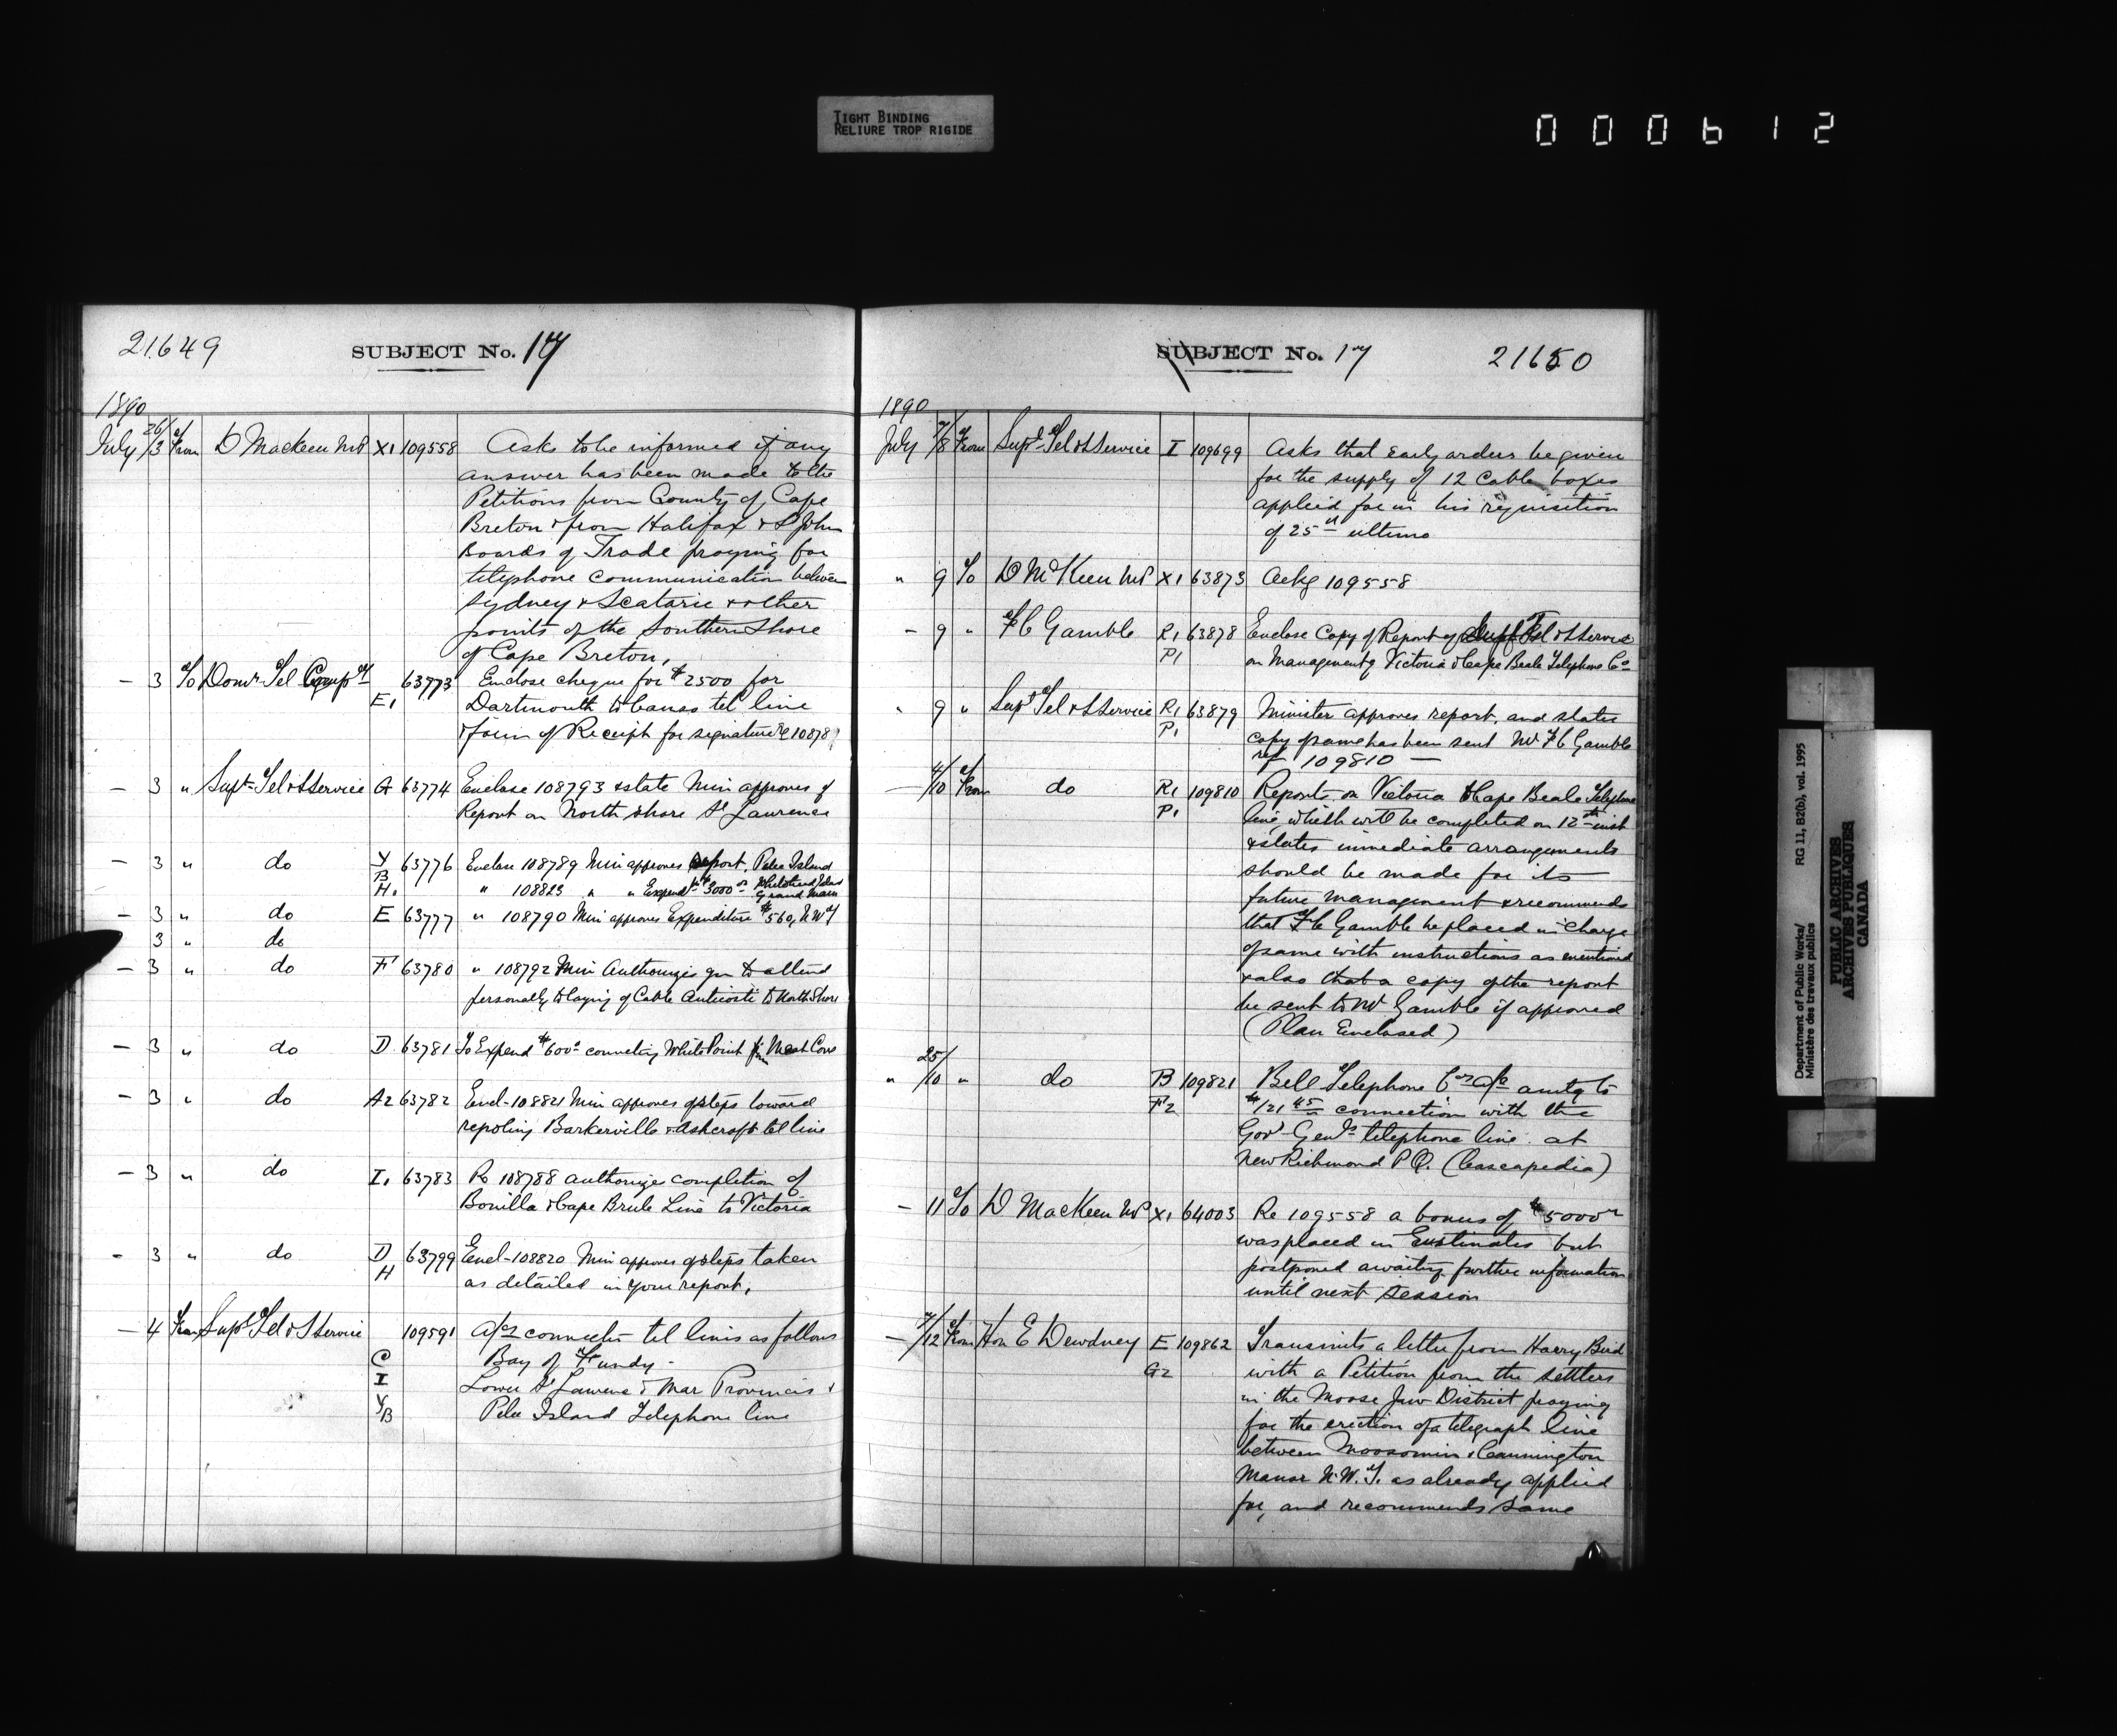 TIGHT BINDING
RELIURE TROP RIGIDE
000612
21649
SUBJECT No. 17
1890
July 26/3 From D MacKeen MP X1 109558 Asks to be informed if any
answer has been made to the
Petitions from County of Cape
Breton & from Halifax & St John
Boards of Trade praying for
telephone communication between
Sydney & Scatarie & other
points of the Southern Shore
of Cape Breton,
— 3 To Domn Tel Compy E1 63773 Enclose cheque for $2500 for
Dartmouth to Canso tel line
& form of Receipt for signature
— 3 " Supt Tel & S Service A 63774 Enclose 108793 & state Min approves of
Report on North Shore St Lawrence
— 3 " do Y B 63776 Enclose 108789 Min approves report, Pelee Island
H1 " 108823 " " Expend 3000 Whitehead Island Grand Manan
— 3 " do E 63777 " 108790 Min approves Expenditure $560, NWT
— 3 " do
— 3 " do F 63780 " 108792 Min Authorizes you to attend
personally to laying of Cable Anticosti to North Shore
— 3 " do D 63781 To Expend $600 connecting White Point Meat Cove
— 3 " do A2 63782 Encl- 108821 Min approves of steps toward
repoling Barkerville & Ashcroft tel line
— 3 " do I1 63783 Re 108788 authorizes completion of
Bonilla & Cape Brule Line to Victoria
— 3 " do D H 63799 Encl- 108820 Min approves of steps taken
as detailed in your report,
— 4 From Supt Tel & S Service 109591 A/cs connectn tel lines as follows
C Bay of Fundy -
I Lower St Lawrence & Mar Provinces &
Y/B Pelee Island Telephone line
SUBJECT No. 17
21650
1890
July 7/8 From Supt Tel & S Service I 109699 Asks that early orders be given
for the supply of 12 cable boxes
applied for in his requisition
of 25th ultimo
" 9 To D McKeen MP X1 63873 Ackg 109558
— 9 " F C Gamble R1 63878 Enclose Copy of Report of Supt Tel & S Service
P1 on Management of Victoria & Cape Beale Telephone Co
" 9 " Supt Tel & S Service R1 63879 Minister approves report, and states
P1 copy of same has been sent Mr F C Gamble
ref 109810 —
— 4/10 From do R1 109810 Reports on Victoria & Cape Beale Telephone
P1 line which will be completed on 12th inst
& states immediate arrangements
should be made for its
future management & recommends
that F C Gamble be placed in charge
of same with instructions as mentioned
& also that a copy of the report
be sent to Mr Gamble if approved
(Plan Enclosed)
" 25/10 " do B 109821 Bell Telephone Co's a/c amtg to
F2 $121 45 connection with the
Gov Genl's telephone line at
New Richmond P Q. (Cascapedia)
— 11 To D MacKeen MP X1 64003 Re 109558 a bonus of $5000
was placed in Estimates but
postponed awaiting further information
until next session
— 7/12 From Hon E Dewdney E 109862 Transmits a letter from Harry Bird
G2 with a Petition from the settlers
in the Moose Jaw District praying
for the erection of a telegraph line
between Moosomin & Cannington
Manor N.W.T. as already applied
for, and recommends same
Department of Public Works/
Ministère des travaux publics
RG 11, B2(b), vol. 1995
PUBLIC ARCHIVES
ARCHIVES PUBLIQUES
CANADA